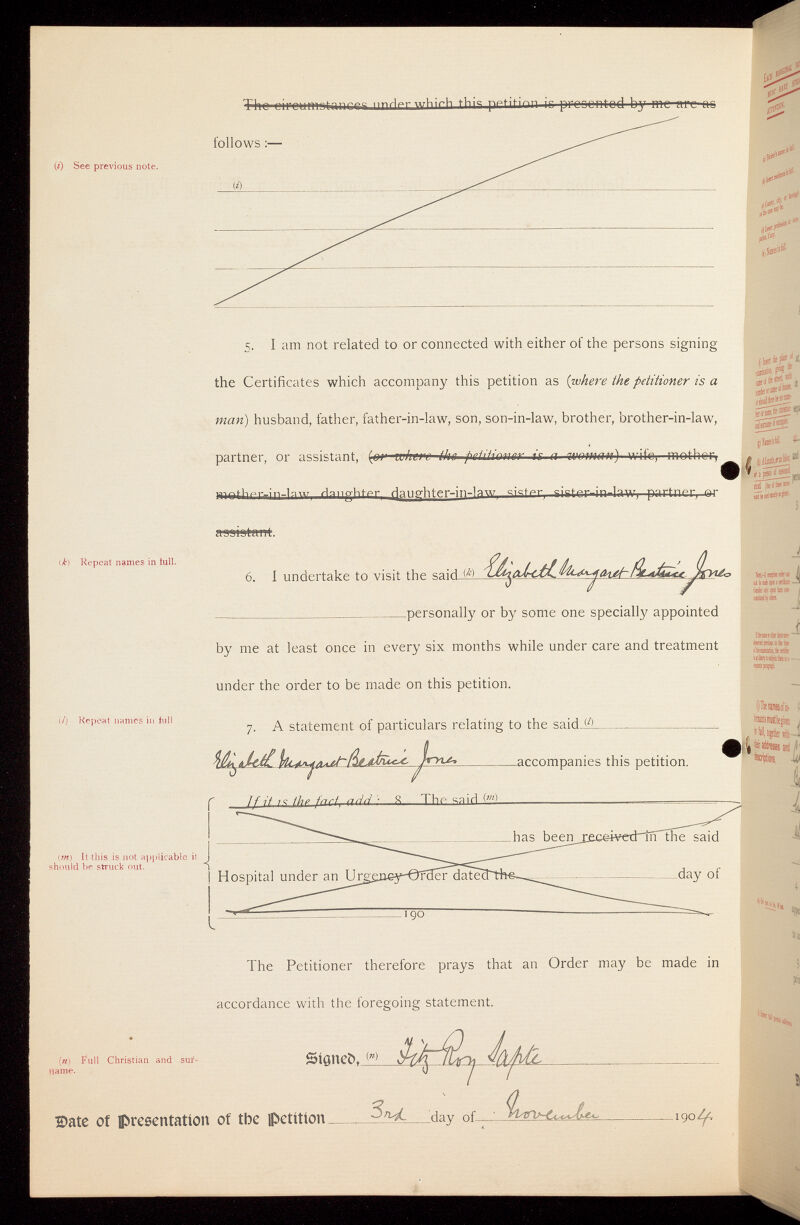 The circumstances under which this petition is presented by me are as
follows :—
(i) See previous note.
(i)
5. I am not related to or connected with either of the persons signing
the Certificates which accompany this petition as (where the petitioner is a
man) husband, father, father-in-law, son, son-in-law, brother, brother-in-law,
partner, or assistant, (or where the petitioner is a woman) wife, mother,
mother-in-law, daughter, daughter-in-law, sister, sister-in-law, partner, or
assistant.
(k) Repeat names in full.
6. I undertake to visit the said (k) Elizabeth Margaret Beatrice Jones
personally or by some one specially appointed
by me at least once in every six months while under care and treatment
under the order to be made on this petition.
(l) Repeat names in full
7. A statement of particulars relating to the said (l)
Elizabeth Margaret Beatrice Jones accompanies this petition.
If it is the fact, add : 8. The said (m)
has been received in the said
(m) If this is not applicable it
should be struck out.
Hospital under an Urgency Order dated the day of
190
The Petitioner therefore prays that an Order may be made in
accordance with the foregoing statement.
(n) Full Christian and sur-
name.
Signed, (n) Fitz Roy Sapte
Date of Presentation of the Petition 3rd day of November 1904.